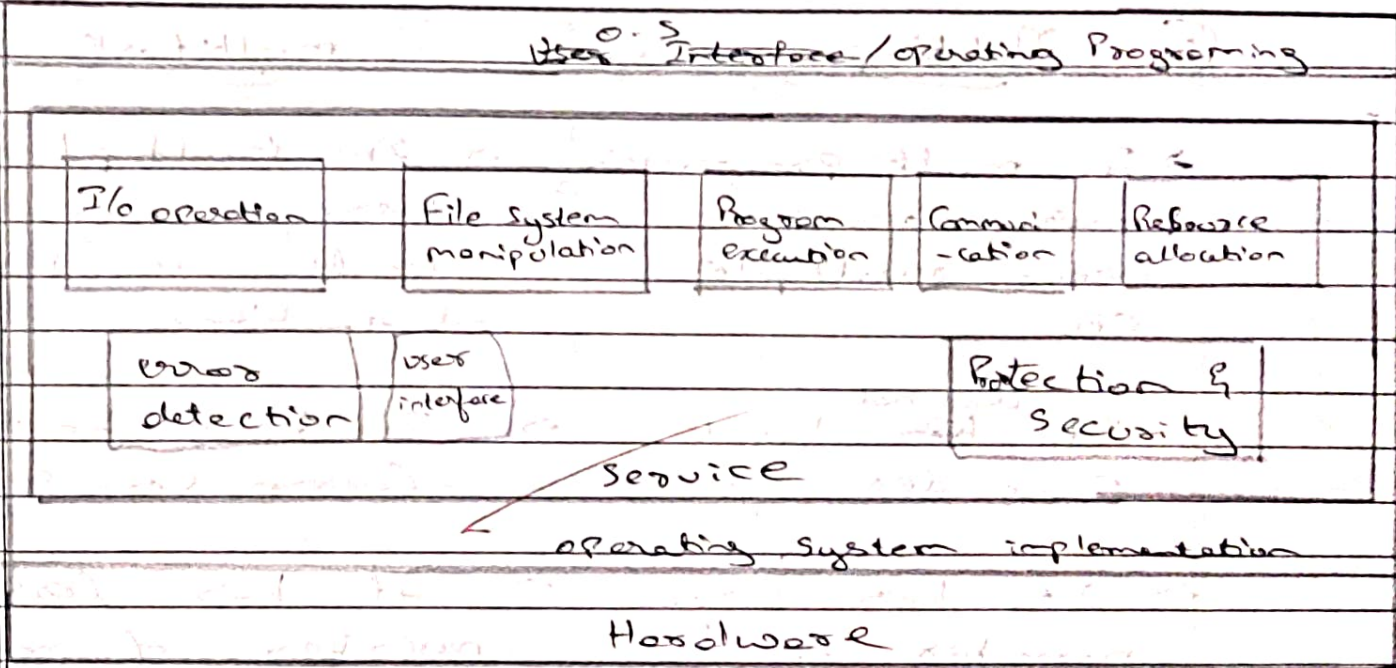 O.S
User Interface / operating Programing
I/o operation
File system
manipulation
Program
execution
Communi
-cation
Resource
allocation
error
detection
user
interface
Protection &
Security
Service
operating system implementation
Hardware